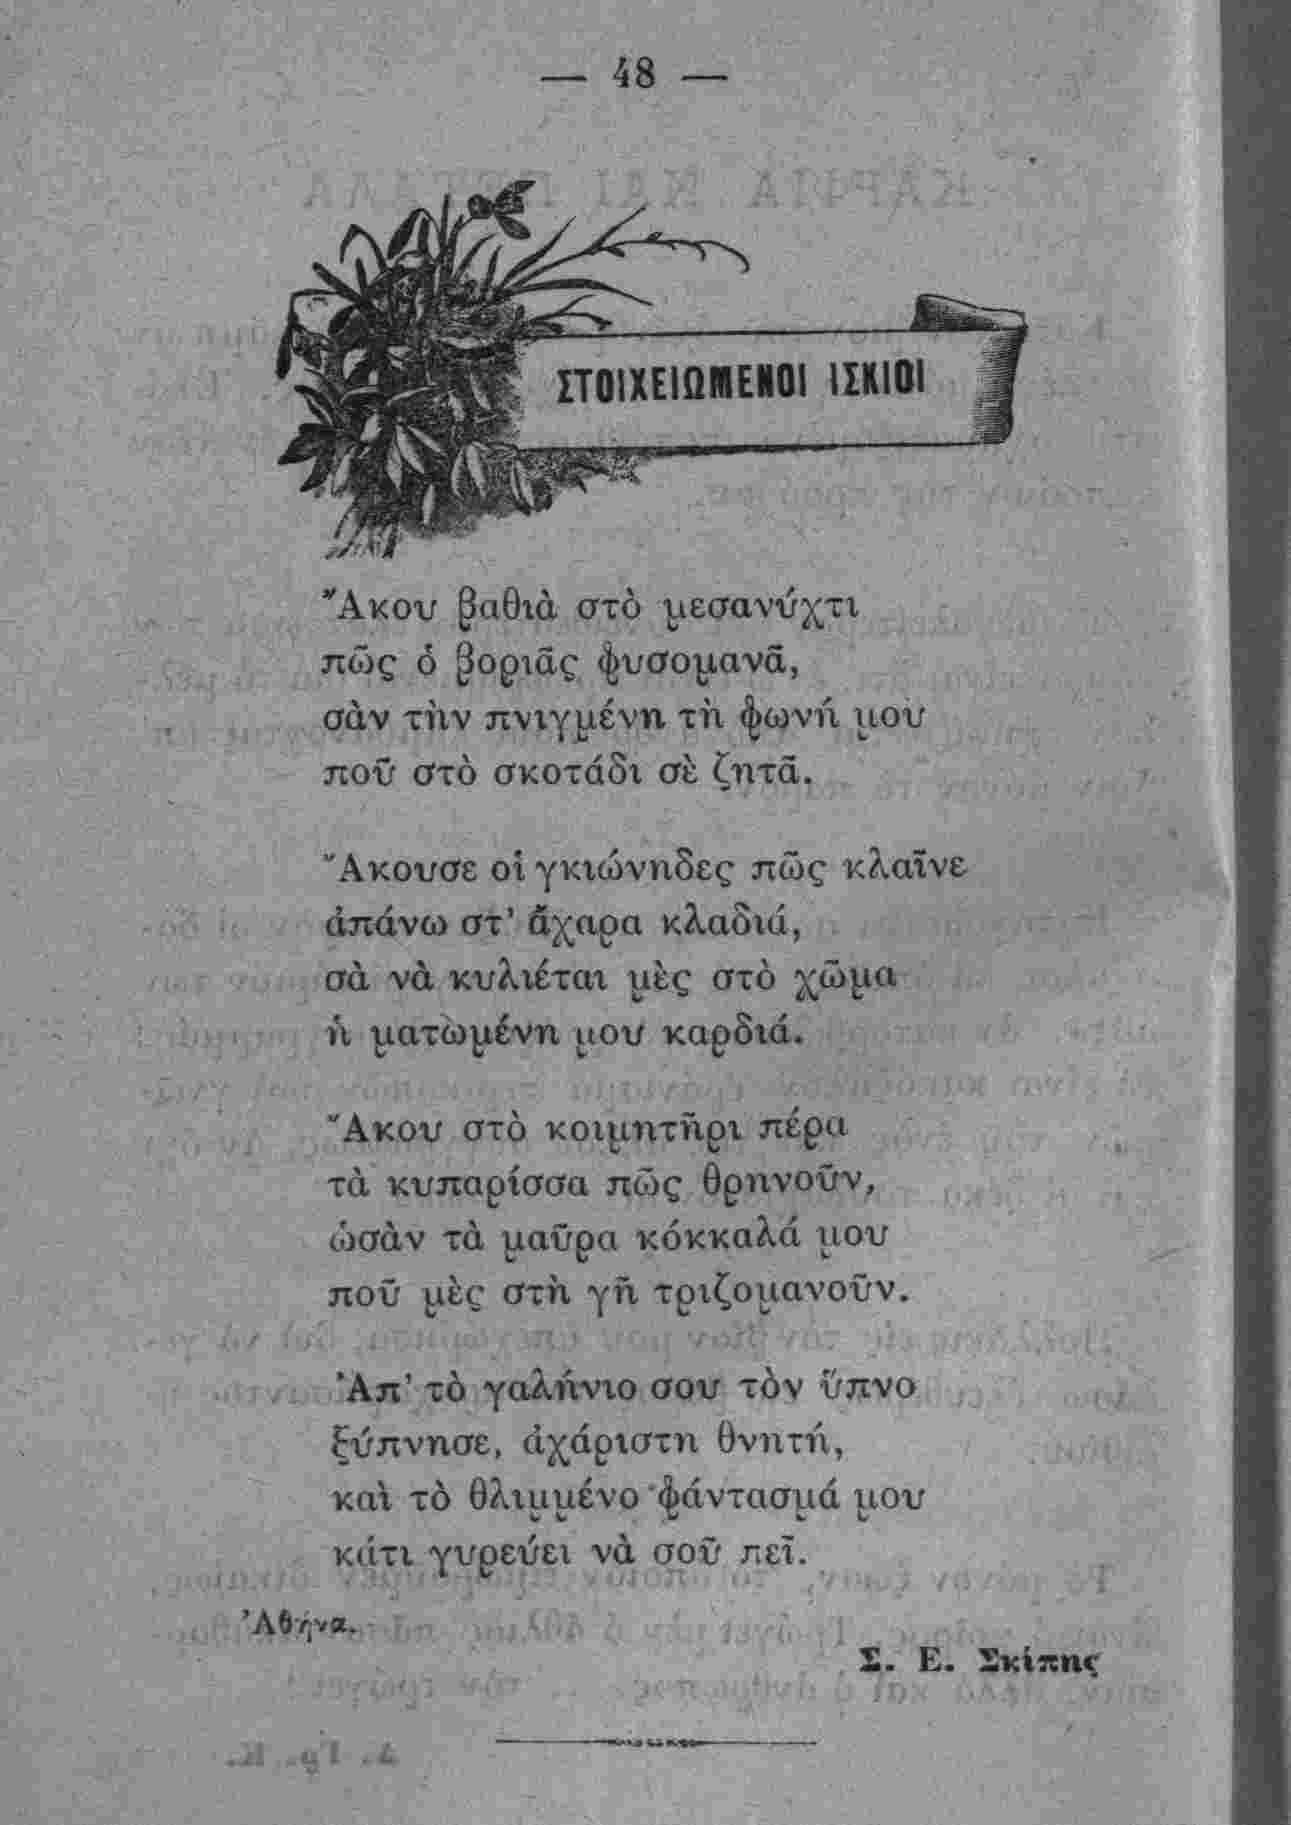 — 48 —
ΣΤΟΙΧΕΙΩΜΕΝΟΙ ΙΣΚΙΟΙ
Ἄκου βαθιὰ στὸ μεσανύχτι
πῶς ὁ βοριᾶς φυσομανᾶ,
σὰν τὴν πνιγμένη τὴ φωνή μου
ποῦ στὸ σκοτάδι σὲ ζητᾶ.
Ἄκουσε οἱ γκιώνηδες πῶς κλαῖνε
ἀπάνω στ’ ἄχαρα κλαδιά,
σὰ νὰ κυλιέται μὲς στὸ χῶμα
ἡ ματωμένη μου καρδιά.
Ἄκου στὸ κοιμητῆρι πέρα
τὰ κυπαρίσσα πῶς θρηνοῦν,
ὡσὰν τὰ μαῦρα κόκκαλά μου
ποῦ μὲς στὴ γῆ τριζομανοῦν.
Ἀπ’ τὸ γαλήνιο σου τὸν ὕπνο
ξύπνησε, ἀχάριστη θνητή,
καὶ τὸ θλιμμένο φάντασμά μου
κάτι γυρεύει νὰ σοῦ πεῖ.
Ἀθήνα.
Σ. Ε. Σκίπης